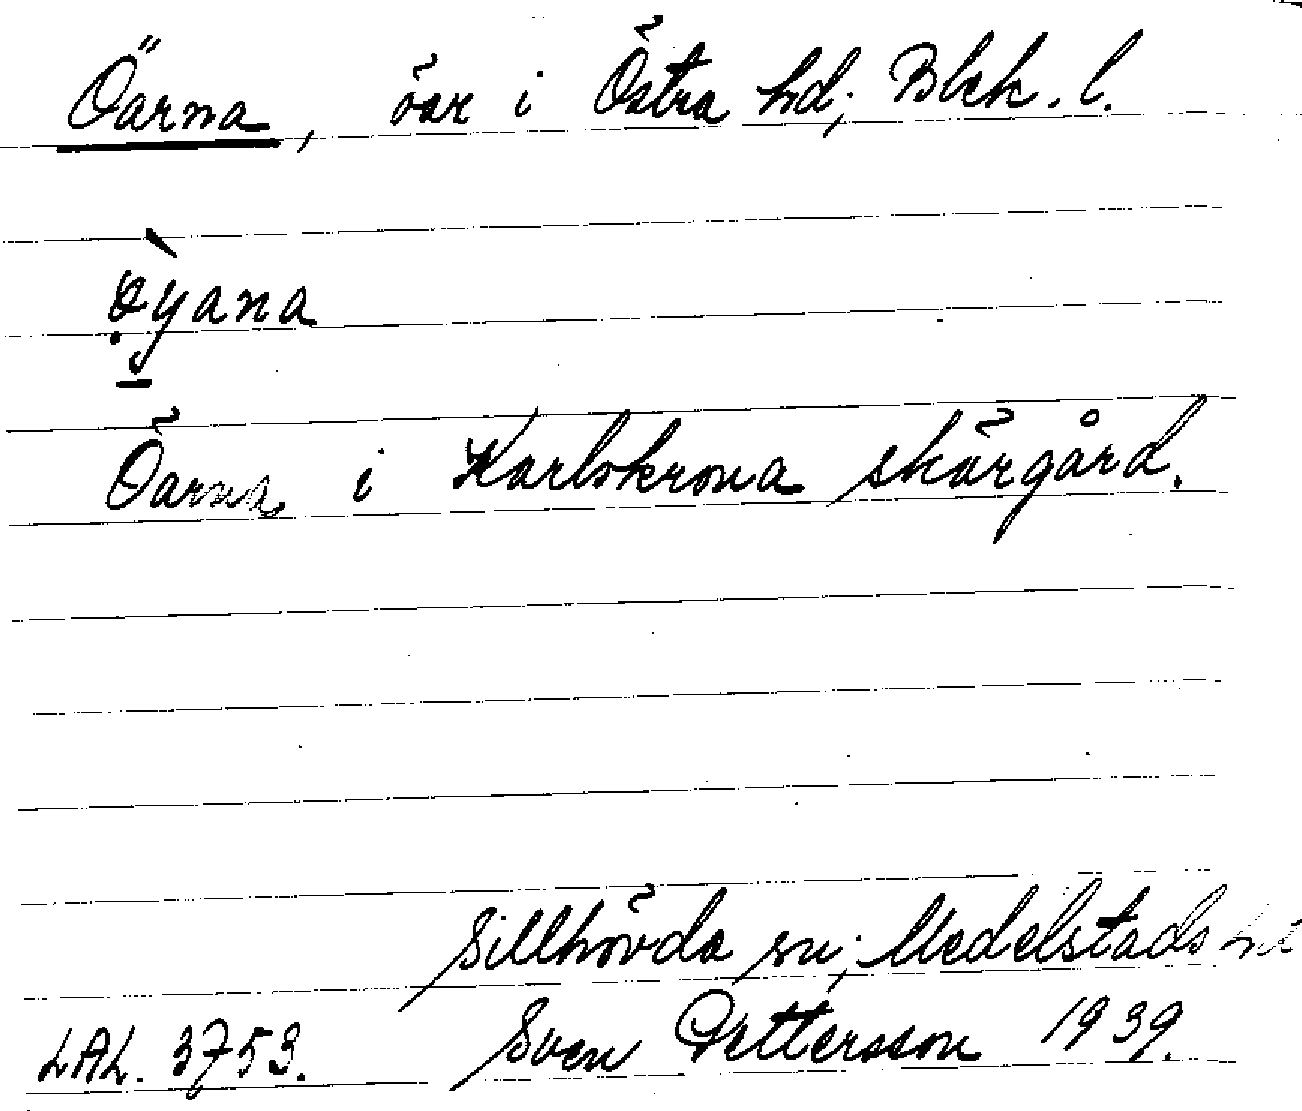 Öarna, öar i Östra hd, Blek. l.
ò̤yana
Öarna i Karlskrona skärgård.
Sillhövda sn, Medelstads hd
LAL. 3753. Sven Pettersson 1939.